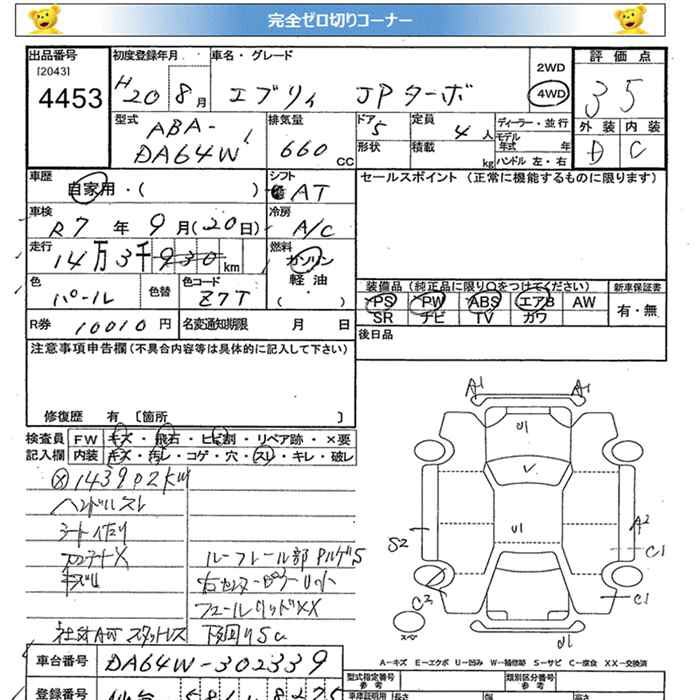 完全ゼロ切りコーナー
出品番号 初度登録年月 車名・グレード 2WD 評価点
[2043]
4453 H20 8月 エブリィ JPターボ 4WD 35
型式 排気量 ドア 定員 ディーラー・並行 外装 内装
ABA-DA64W 660 CC 5 4人 モデル年式 年 D C
形状 積載 kg ハンドル 左・右
車歴 シフト セールスポイント (正常に機能するものに限ります)
自家用・( ) AT
車検 冷房
R7年9月(20日) A/C
走行 燃料
14万3千930km ガソリン
軽油
( )
色 色替 色コード 装備品 (純正品に限り〇をつけてください) 新車保証書
パール Z7T PS PW ABS エアB AW 有・無
SR ナビ TV カワ
R券 10010円 名変通知期限 月 日 後日品
注意事項申告欄 (不具合内容等は具体的に記入して下さい)
修復歴 有 〔箇所 〕
検査員 FW キズ・飛石・ヒビ割・リペア跡・×要
記入欄 内装 キズ・汚レ・コゲ・穴・スレ・キレ・破レ
143902km
ハンドルスレ
シート
キズU
ルーフレール部
右センターピラー
社外AW スタッドレス 下回りSC
A1 A1
U1
U1
S2
A2
C1
C2
C1
U1
スペア
A−キズ E−エクボ U−凹み W−補修跡 S−サビ C−腐食 XX−交換済
車台番号 DA64W-302339 型式指定番号 類別区分番号
参考 参考
登録番号 仙台 581 車庫証明用 長さ 幅 高さ